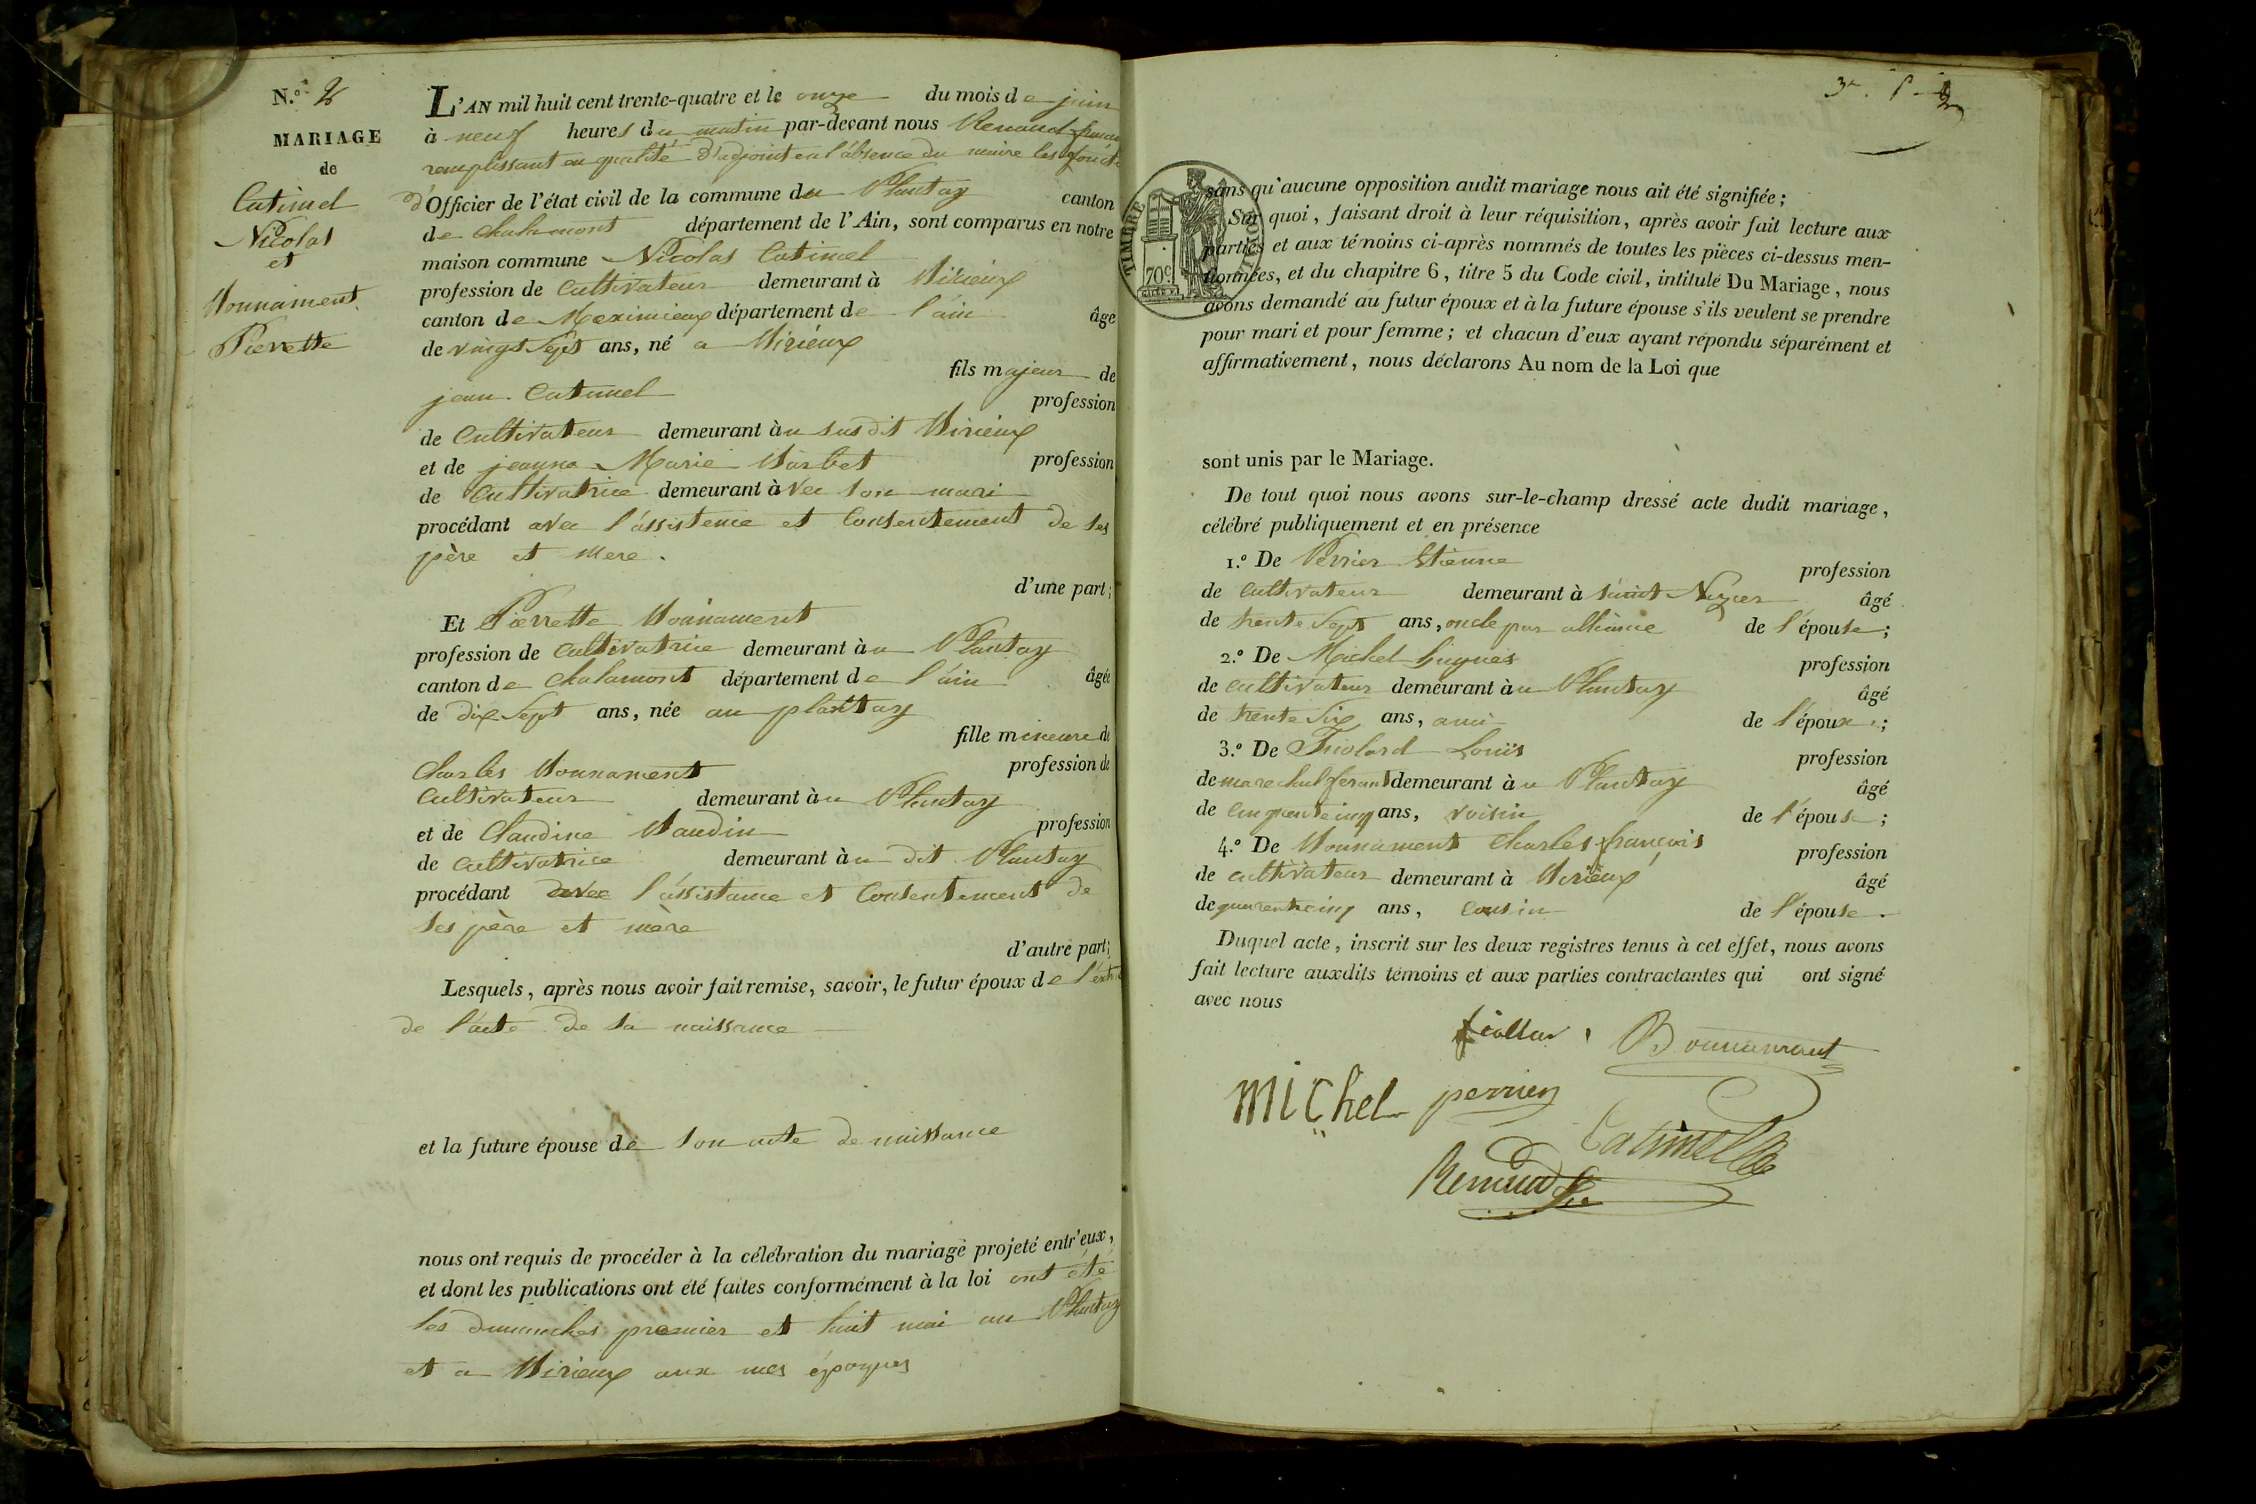 N.º 2
MARIAGE
de
Catimel
Nicolas
et
Bonnament
Pierrette
L'AN mil huit cent trente-quatre et le onze du mois de juin
à neuf heures du matin par-devant nous Renaud
remplissant en qualité d'adjoint en l'absence du maire les
d'Officier de l'état civil de la commune du Plantay canton
de chalamont département de l'Ain, sont comparus en notre
maison commune Nicolas Catimel
profession de Cultivateur demeurant à Birieux
canton de Meximieux département de l'ain âge
de vingt Sept ans, né a Birieux
fils majeur de
jean Catimel profession
de Cultivateur demeurant àu susdit Birieux
et de jeanne Marie Barbet profession
de Cultivatrice demeurant àvec son mari
procédant avec l'assistence et Consentement de ses
père et mere.
d'une part;
Et Pierrette Bonnament
profession de Cultivatrice demeurant àu Plantay
canton de Chalamont département de l'ain âgée
de dix Sept ans, née au plantay
fille mineure de
Charles Bonnament profession de
Cultivateur demeurant àu Plantay
et de Claudine Baudin profession
de Cultivatrice demeurant àu dit Plantay
procédant avec l'assistance et Consentement de
ses père et mère
d'autre part;
Lesquels, après nous avoir fait remise, savoir, le futur époux de
de l'acte de sa naissance
et la future épouse de son acte de naissance
nous ont requis de procéder à la célébration du mariage projeté entr'eux,
et dont les publications ont été faites conformément à la loi ont été
les dimanches premier et huit mai au Plantay
et a Birieux aux mes époques
TIMBRE ROYAL
70c
sans qu'aucune opposition audit mariage nous ait été signifiée;
Sur quoi, faisant droit à leur réquisition, après avoir fait lecture aux
parties et aux témoins ci-après nommés de toutes les pièces ci-dessus men-
tionnées, et du chapitre 6, titre 5 du Code civil, intitulé Du Mariage, nous
avons demandé au futur époux et à la future épouse s'ils veulent se prendre
pour mari et pour femme; et chacun d'eux ayant répondu séparément et
affirmativement, nous déclarons Au nom de la Loi que
sont unis par le Mariage.
De tout quoi nous avons sur-le-champ dressé acte dudit mariage,
célébré publiquement et en présence
1.º De Perrier Etienne profession
de Cultivateur demeurant à saint Nizier âgé
de trente Sept ans, oncle par alliance de l'épouse;
2.º De Michel hugues profession
de cultivateur demeurant àu Plantay âgé
de trente Six ans, ami de l'époux;
3.º De Louis profession
de marechal ferant demeurant àu Plantay âgé
de cinquante cinq ans, voisin de l'épouse;
4.º De Bonnament Charles françois profession
de cultivateur demeurant à Birieux âgé
de quarente cinq ans, cousin de l'épouse.
Duquel acte, inscrit sur les deux registres tenus à cet effet, nous avons
fait lecture auxdits témoins et aux parties contractantes qui ont signé
avec nous
Bonnamant
Michel perrier
Catimel
Renaud